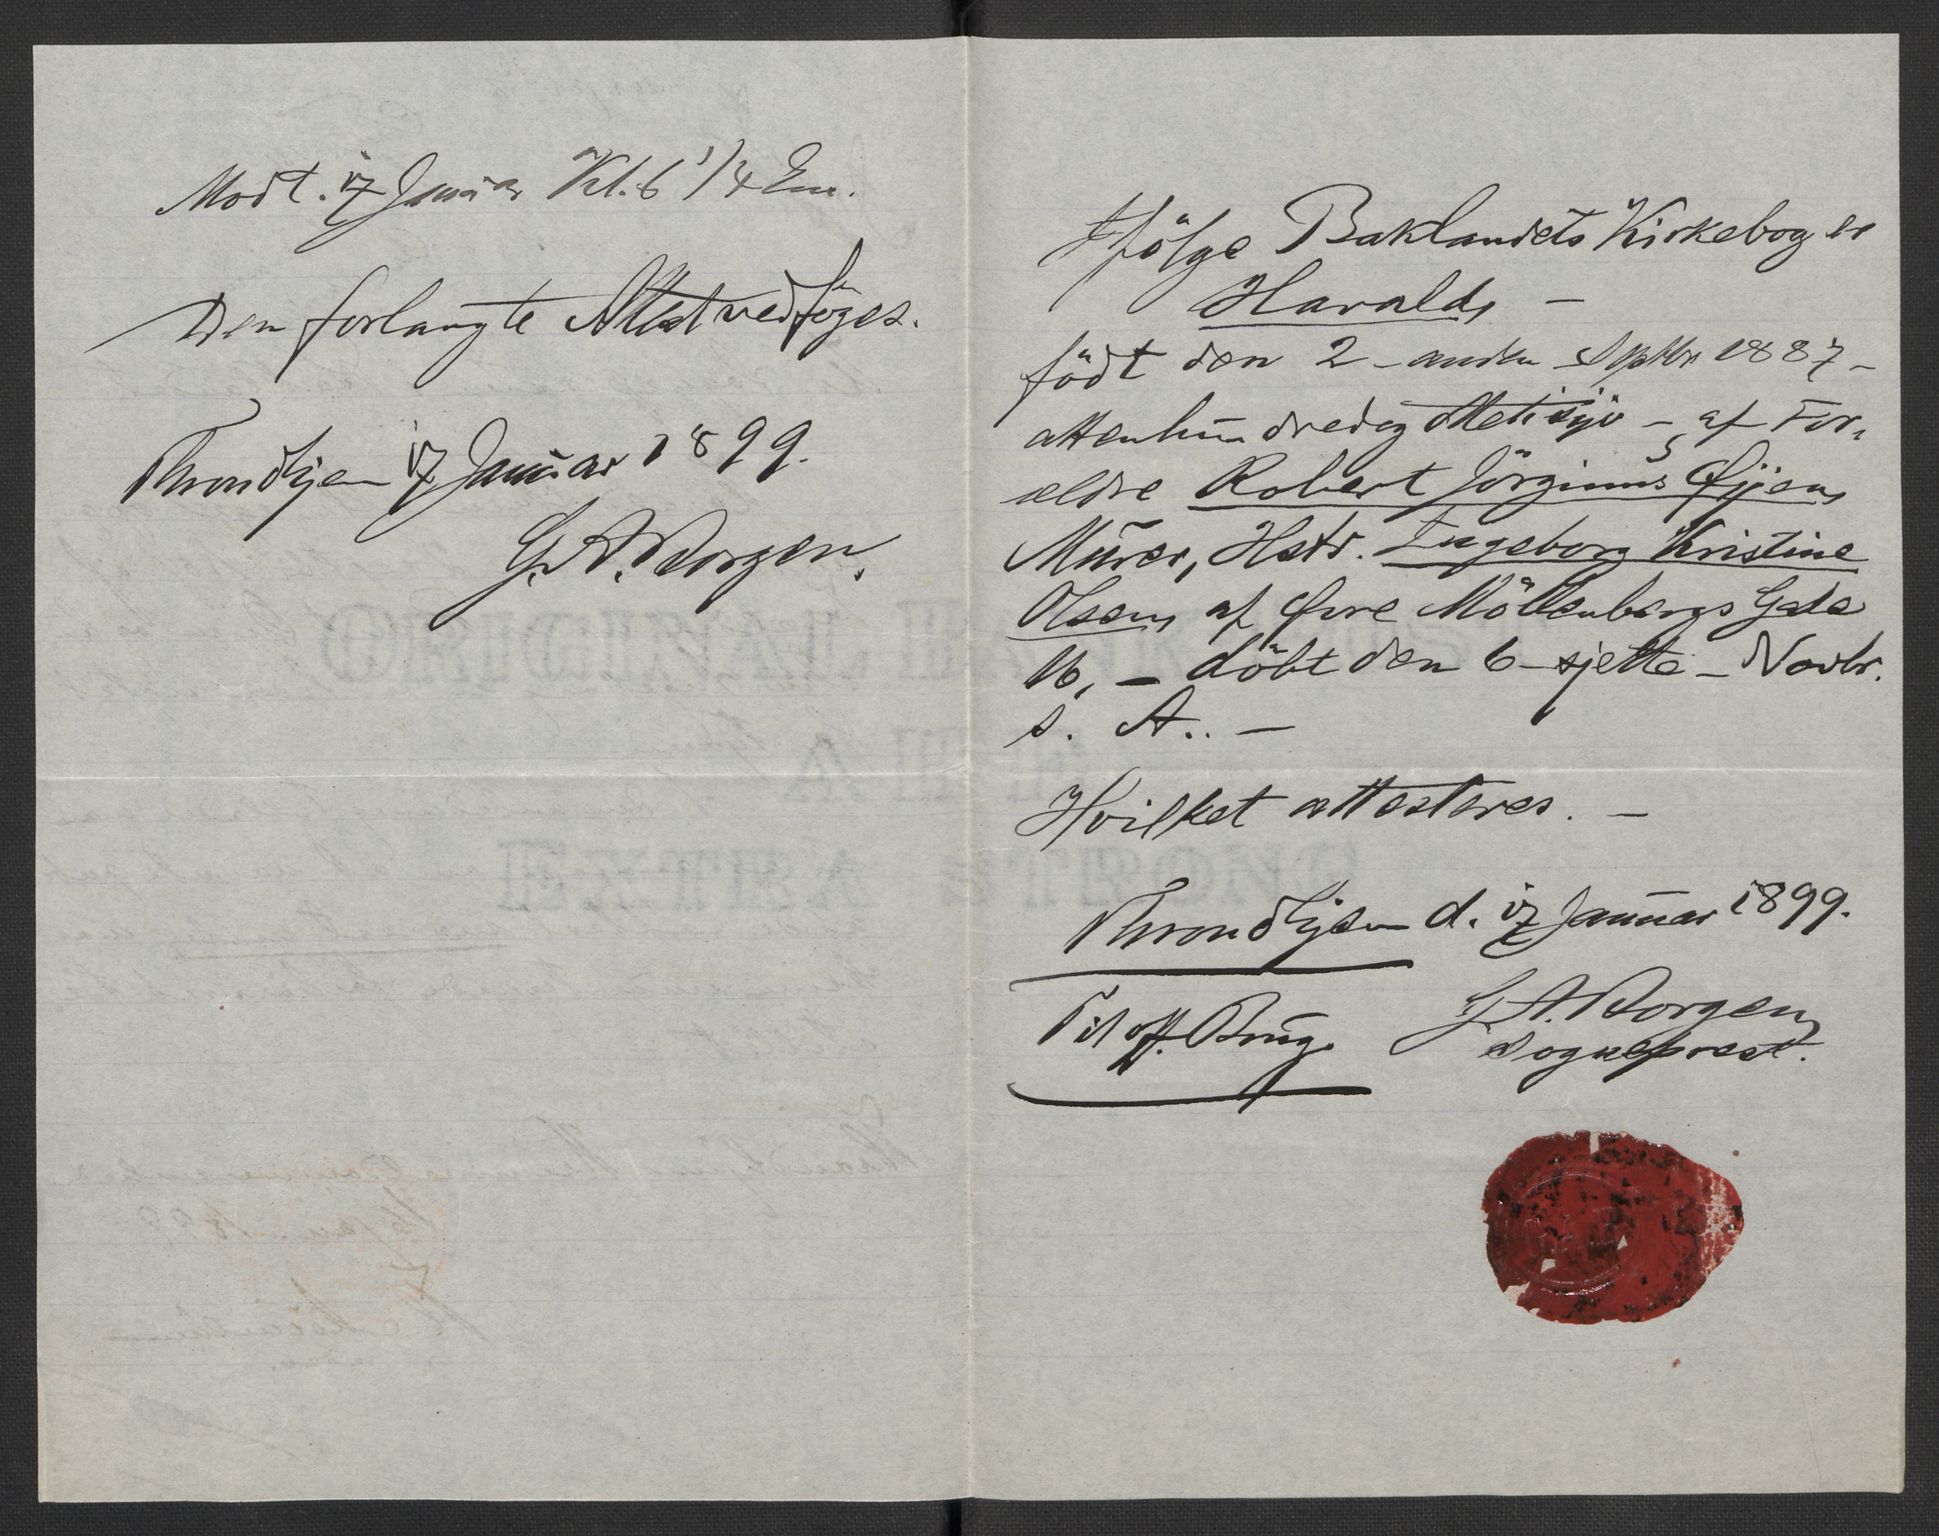 Modt. 17 Januar Kl. 6 1/4 Em.
Den forlangte Attest vedföges.
Throndhjem 17 Januar 1899.
G. A. Borgen.
Ifölge Baklandets Kirkebog er
Harald, –
födt den 2 – anden Septbr 1887 –
attenhundredeg ottetisyv – af For-
ældre Robert Jörginus Øijen,
Murer, Hstr. Ingeborg Kristine
Olsen, af Øvre Möllenbergs Gade
16, – döbt den 6 – sjette – Novbr.
s. A.. –
Hvilket attesteres. –
Throndhjem d. 17 Januar 1899.
Til off. Brug. G. A. Borgen,
Sogneprest.